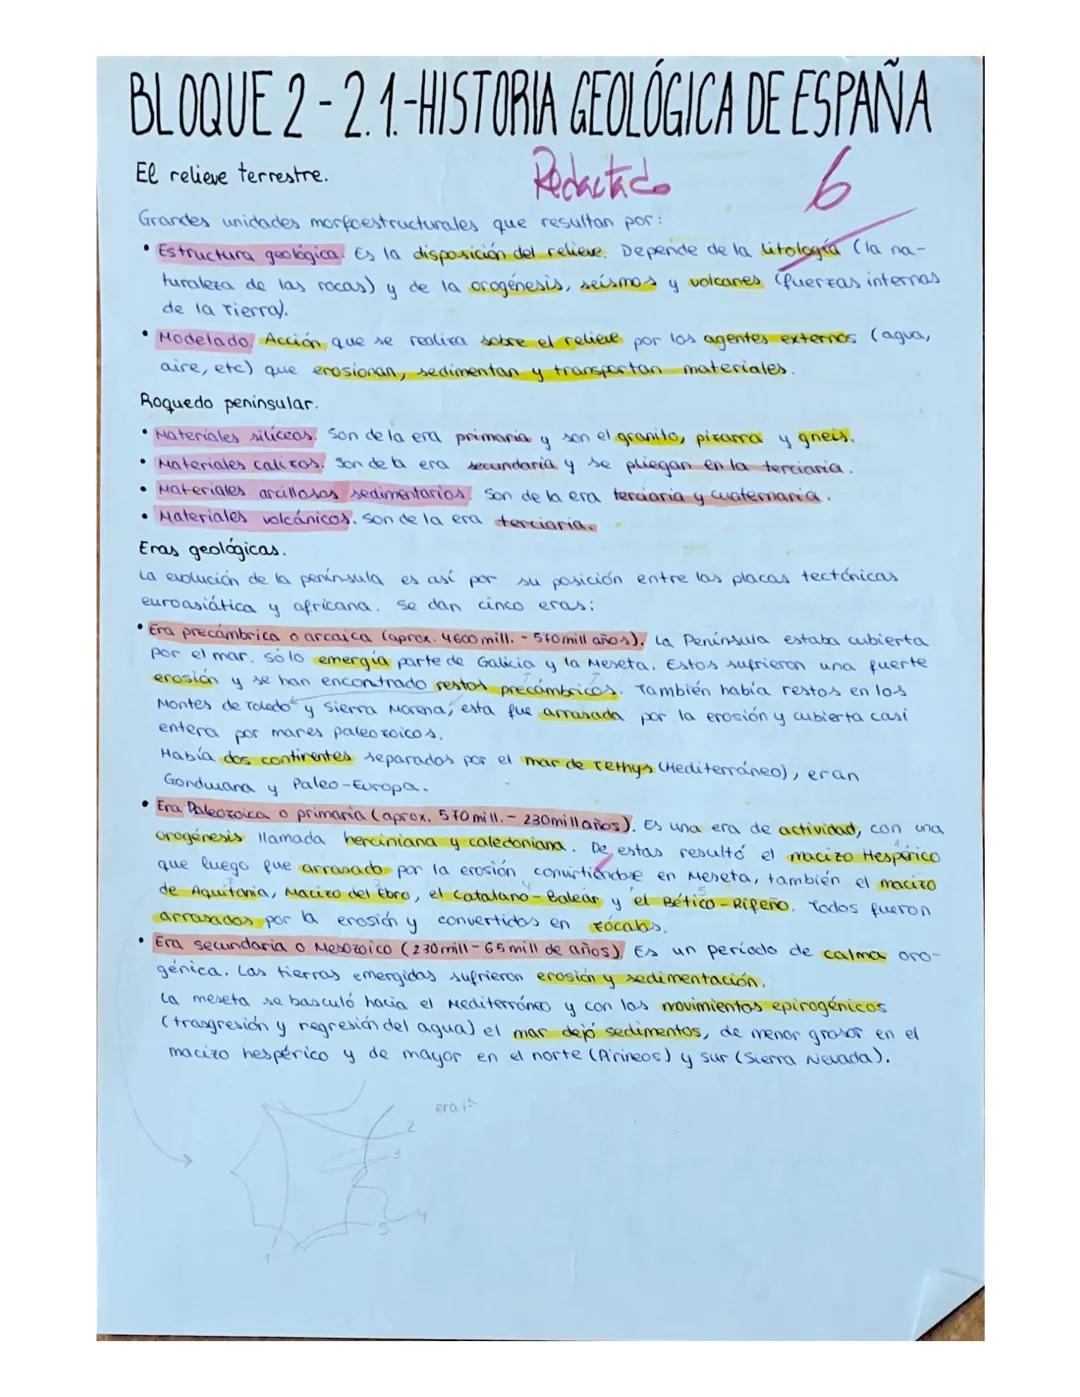 BLOQUE 2 - 2.1.-HISTORIA GEOLÓGICA DE ESPAÑA
El relieve terrestre.
Redactado 6
Grandes unidades morfoestructurales que resultan por:
• Estructura geológica. Es la disposición del relieve. Depende de la litología (la na-
turaleza de las rocas) y de la orogénesis, seísmos y volcanes (fuerzas internas
de la Tierra).
• Modelado. Acción que se realiza sobre el relieve por los agentes externos (agua,
aire, etc) que erosionan, sedimentan y transportan materiales.
Roquedo peninsular.
• Materiales silíceos. Son de la era primaria y son el granito, pizarra y gneis.
• Materiales calizos. Son de la era secundaria y se pliegan en la terciaria.
• Materiales arcillosos sedimentarios. Son de la era terciaria y cuaternaria.
• Materiales volcánicos. Son de la era terciaria.
Eras geológicas.
La evolución de la península es así por su posición entre las placas tectónicas
euroasiática y africana. Se dan cinco eras:
• Era precámbrica o arcaica (aprox. 4600 mill. - 570 mill años). La Península estaba cubierta
por el mar. Sólo emergía parte de Galicia y la Meseta. Estos sufrieron una fuerte
erosión y se han encontrado restos precámbricos. También había restos en los
Montes de Toledo y Sierra Morena, esta fue arrasada por la erosión y cubierta casi
entera por mares paleozoicos.
Había dos continentes separados por el mar de Tethys (Mediterráneo), eran
Gondwana y Paleo-Europa.
• Era Paleozoica o primaria (aprox. 570 mill. - 230 mill años). Es una era de actividad, con una
orogénesis llamada herciniana y caledoniana. De estas resultó el macizo Hespérico
que luego fue arrasado por la erosión convirtiéndose en Meseta, también el macizo
de Aquitania, Macizo del Ebro, el Catalano-Balear y el Bético-Rifeño. Todos fueron
arrasados por la erosión y convertidos en zócalos.
• Era secundaria o Mesozoico (230 mill - 65 mill de años). Es un período de calma oro-
génica. Las tierras emergidas sufrieron erosión y sedimentación.
La meseta se basculó hacia el Mediterráneo y con los movimientos epirogénicos
(trasgresión y regresión del agua) el mar dejó sedimentos, de menor grosor en el
macizo hespérico y de mayor en el norte (Pirineos) y sur (Sierra Nevada).
era 1ª
2
3
4
5
1